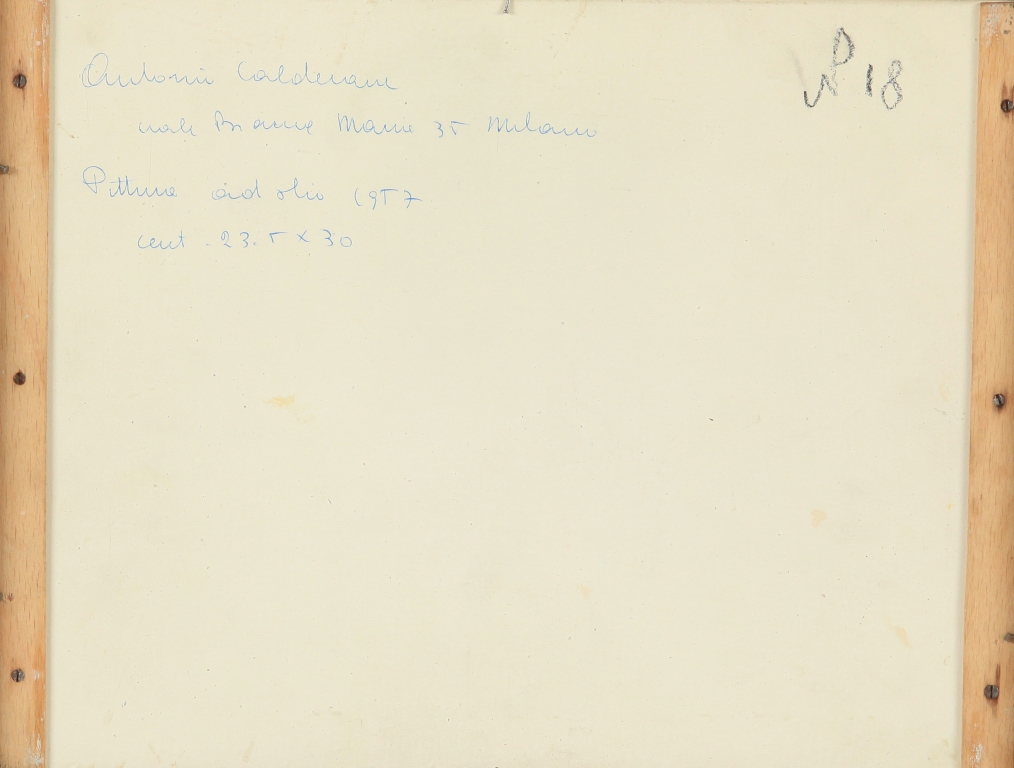 Antonio Calderara
viale Bianca Maria 35 Milano
Pittura ad olio 1957
cent. 23.5 x 30
N 18